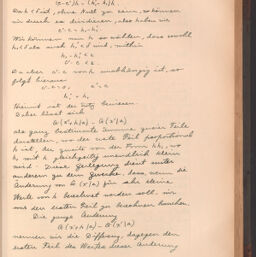 (c'-c)h = (h'₁-h₁)h
Da h < 0 ist, ohne Null zu sein, so können
wir durch es dividieren, also haben wir
c'-c = h₁-h'₁
Wir können nun h so wählen, dass sowohl
h₁ < d als auch h'₁ < d wird, mithin
h₁-h'₁ < ε
c'-c < ε.
Da aber c'-c von h unabhängig ist, so
folgt hieraus
c'-c = 0, c' = c
h'₁ = h₁
Hiermit ist der Satz bewiesen.
Daher lässt sich
G(x',h|a) - G(x'|a)
als ganz bestimmte Summe zweier Teile
darstellen, wo der erste Teil proportional
h ist, der zweite von der Form hh₁, wo
h₁ mit h gleichzeitig unendlich klein
wird. Diese Zerlegung dient unter
anderem zu dem Zwecke, dass, wenn die
Änderung von G(x|a) für sehr kleine
Werte von h berechnet werden soll, wir
nur den ersten Teil zu berechnen brauchen.
Die ganze Änderung
G(x+h|a) - G(x'|a)
nennen wir die Differenz, dagegen den
ersten Teil des Wertes dieser Änderung